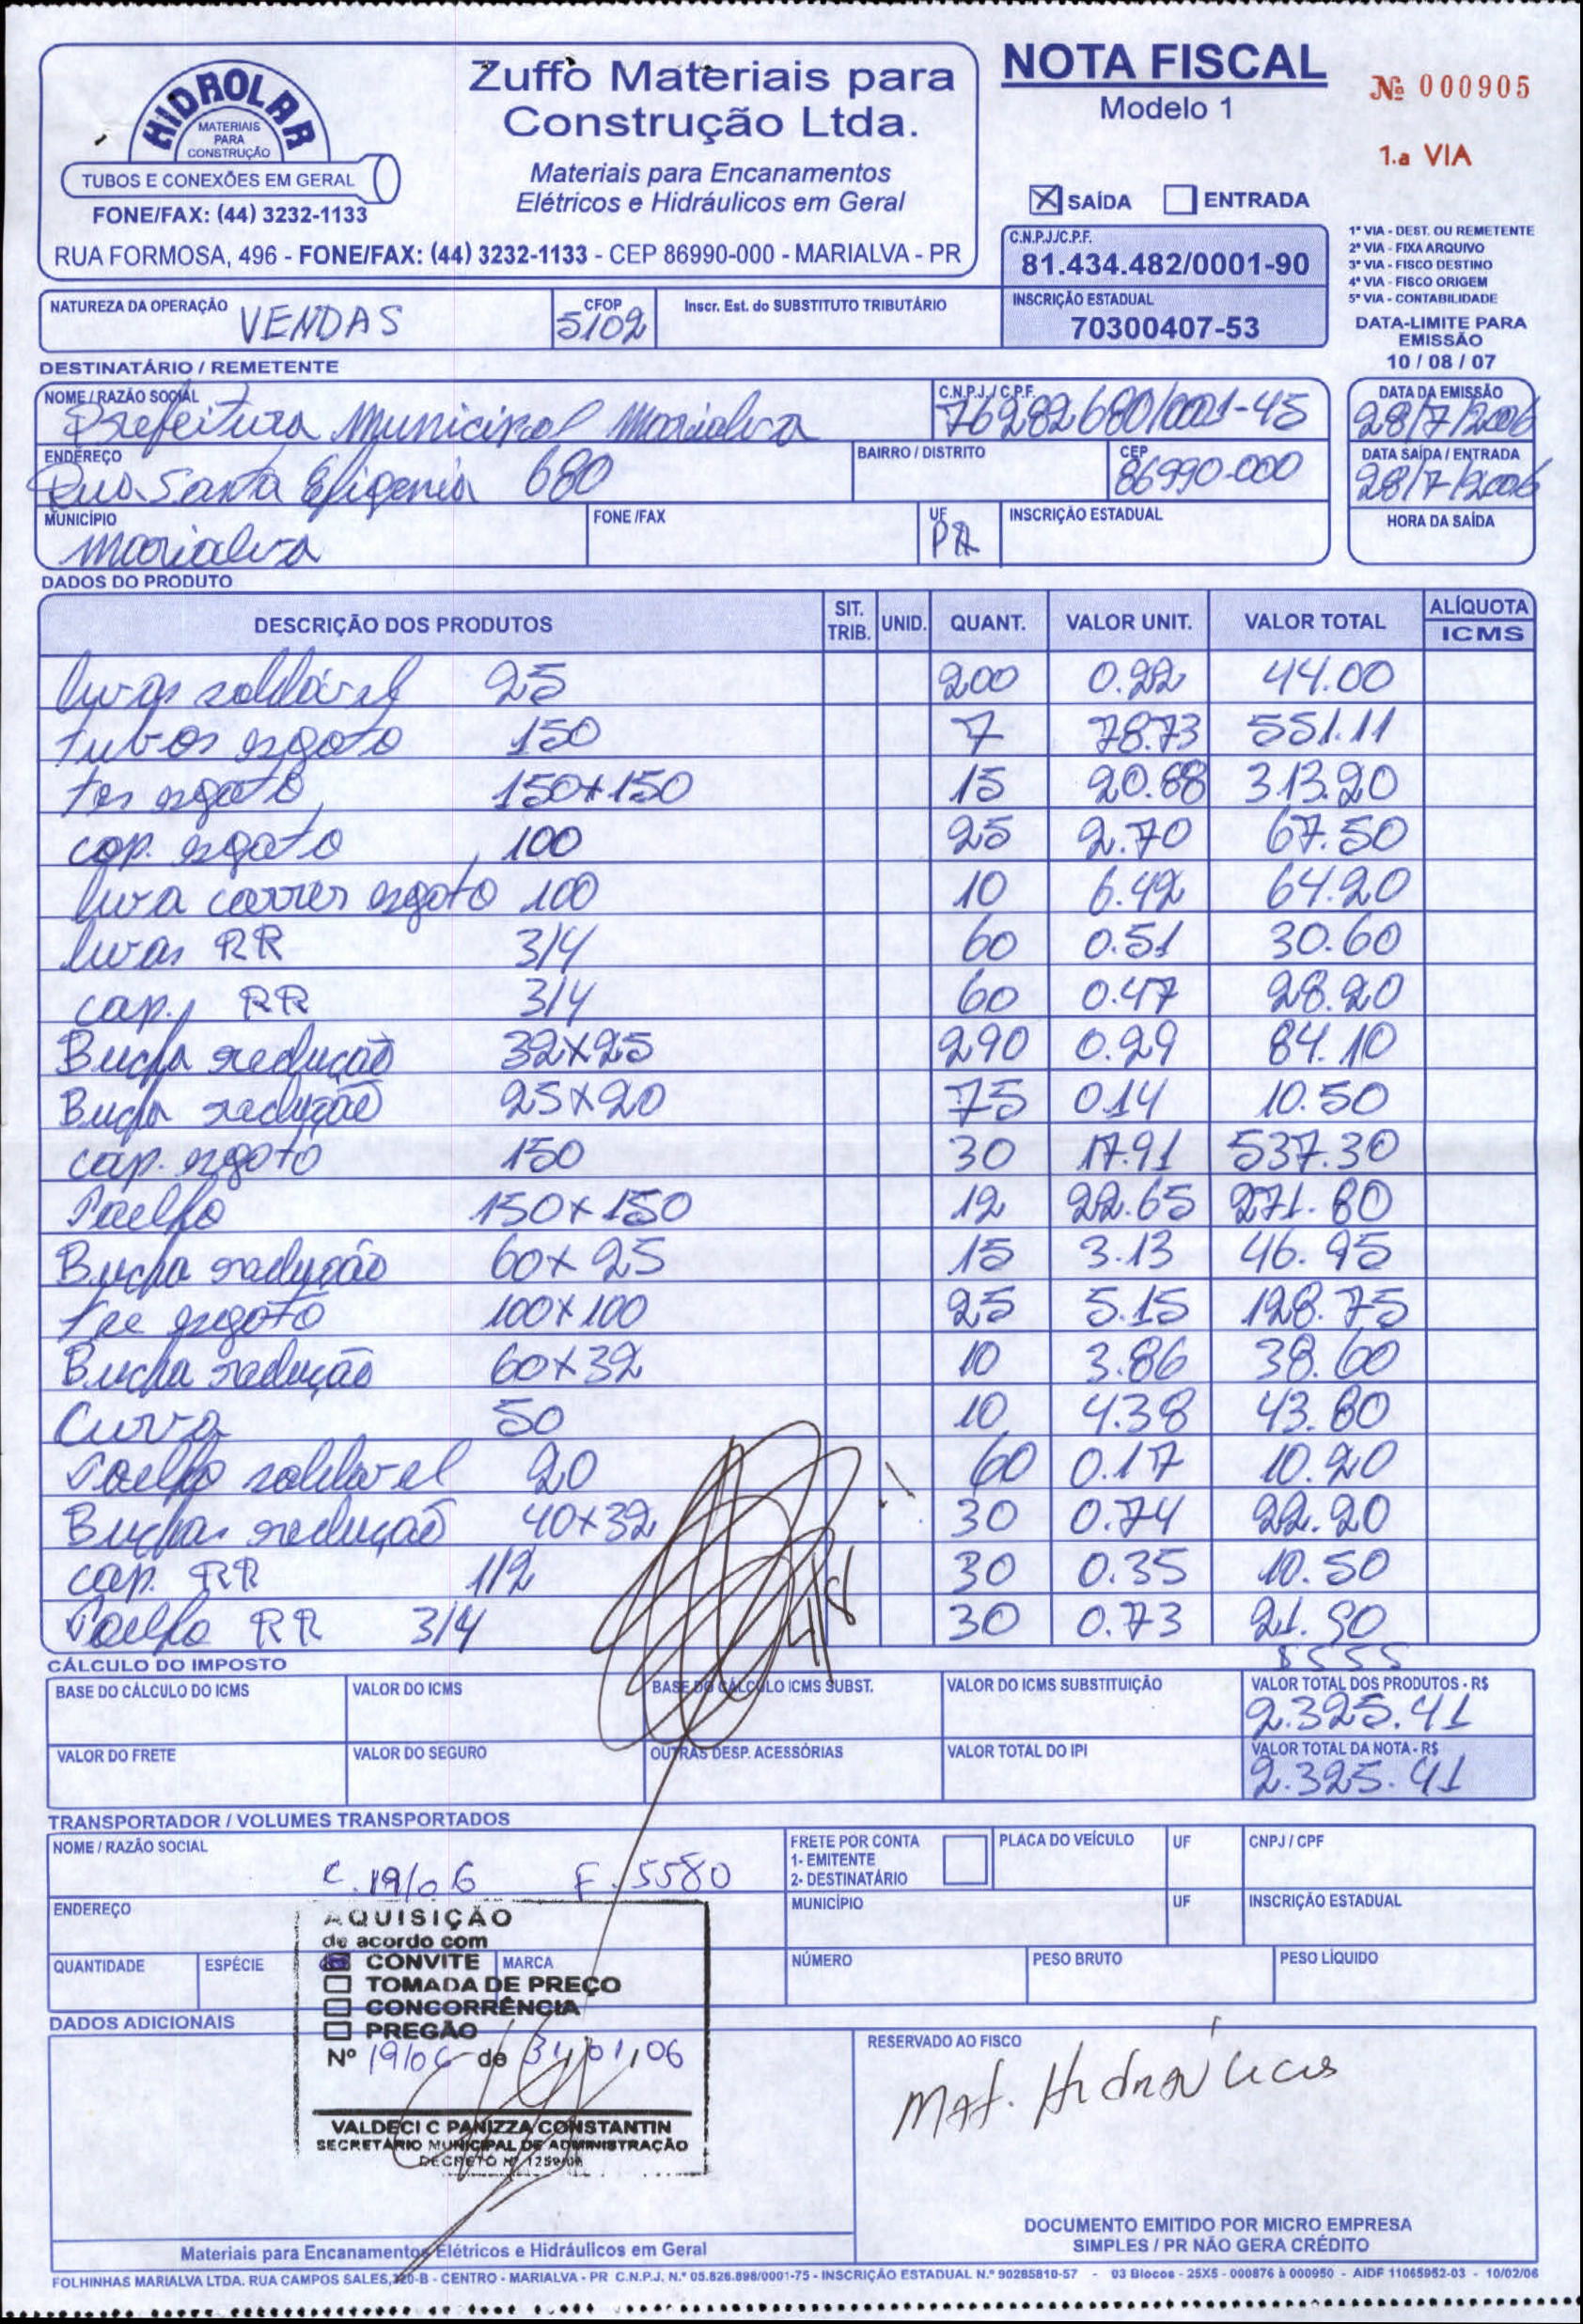 HIDROLAR
MATERIAIS
PARA
CONSTRUÇÃO
TUBOS E CONEXÕES EM GERAL
FONE/FAX: (44) 3232-1133
Zuffo Materiais para
Construção Ltda.
Materiais para Encanamentos
Elétricos e Hidráulicos em Geral
RUA FORMOSA, 496 - FONE/FAX: (44) 3232-1133 - CEP 86990-000 - MARIALVA - PR
NOTA FISCAL
Modelo 1
Nº 000905
1.a VIA
X SAÍDA ENTRADA
C.N.P.J./C.P.F.
81.434.482/0001-90
INSCRIÇÃO ESTADUAL
70300407-53
1ª VIA - DEST. OU REMETENTE
2ª VIA - FIXA ARQUIVO
3ª VIA - FISCO DESTINO
4ª VIA - FISCO ORIGEM
5ª VIA - CONTABILIDADE
DATA-LIMITE PARA
EMISSÃO
10 / 08 / 07
NATUREZA DA OPERAÇÃO VENDAS
CFOP 5102
Inscr. Est. do SUBSTITUTO TRIBUTÁRIO
DESTINATÁRIO / REMETENTE
NOME / RAZÃO SOCIAL Prefeitura Municipal Marialva
C.N.P.J. / C.P.F. 76282680/0001-45
DATA DA EMISSÃO 28/7/2006
ENDEREÇO Rua Santa Efigenia 680
BAIRRO / DISTRITO
CEP 86990-000
DATA SAÍDA / ENTRADA 28/7/2006
MUNICÍPIO Marialva
FONE /FAX
UF PR
INSCRIÇÃO ESTADUAL
HORA DA SAÍDA
DADOS DO PRODUTO
DESCRIÇÃO DOS PRODUTOS SIT. TRIB. UNID. QUANT. VALOR UNIT. VALOR TOTAL ALÍQUOTA ICMS
luvas soldável 25 200 0.22 44.00
tubos esgoto 150 7 78.73 551.11
tes esgoto 150x150 15 20.88 313.20
cap. esgoto 100 25 2.70 67.50
luva correr esgoto 100 10 6.42 64.20
luvas RR 3/4 60 0.51 30.60
cap. RR 3/4 60 0.47 28.20
Bucha redução 32x25 290 0.29 84.10
Bucha redução 25x20 75 0.14 10.50
cap. esgoto 150 30 17.91 537.30
Joelho 150x150 12 22.65 271.80
Bucha redução 60x25 15 3.13 46.95
tee esgoto 100x100 25 5.15 128.75
Bucha redução 60x32 10 3.86 38.60
Curva 50 10 4.38 43.80
Joelho soldavel 20 60 0.17 10.20
Buchas redução 40x32 30 0.74 22.20
cap. RR 1/2 30 0.35 10.50
Joelho RR 3/4 30 0.73 21.90
5555
CÁLCULO DO IMPOSTO
BASE DO CÁLCULO DO ICMS
VALOR DO ICMS
BASE DO CÁLCULO ICMS SUBST.
VALOR DO ICMS SUBSTITUIÇÃO
VALOR TOTAL DOS PRODUTOS - R$
2.325.41
VALOR DO FRETE
VALOR DO SEGURO
OUTRAS DESP. ACESSÓRIAS
VALOR TOTAL DO IPI
VALOR TOTAL DA NOTA - R$
2.325.41
TRANSPORTADOR / VOLUMES TRANSPORTADOS
NOME / RAZÃO SOCIAL
C. 19/06 F. 5580
FRETE POR CONTA
1- EMITENTE
2- DESTINATÁRIO
PLACA DO VEÍCULO
UF
CNPJ / CPF
ENDEREÇO
MUNICÍPIO
UF
INSCRIÇÃO ESTADUAL
QUANTIDADE
ESPÉCIE
MARCA
NÚMERO
PESO BRUTO
PESO LÍQUIDO
AQUISIÇÃO
de acordo com
CONVITE
TOMADA DE PREÇO
CONCORRÊNCIA
PREGÃO
Nº 19/06 de 31/01/06
VALDECI C PANIZZA CONSTANTIN
SECRETARIO MUNICIPAL DE ADMINISTRAÇÃO
DECRETO Nº
DADOS ADICIONAIS
RESERVADO AO FISCO
Mat. Hidráulicos
DOCUMENTO EMITIDO POR MICRO EMPRESA
SIMPLES / PR NÃO GERA CRÉDITO
Materiais para Encanamentos Elétricos e Hidráulicos em Geral
FOLHINHAS MARIALVA LTDA. RUA CAMPOS SALES, 320-B - CENTRO - MARIALVA - PR C.N.P.J. N.º 05.826.898/0001-75 - INSCRIÇÃO ESTADUAL N.º 90285810-57 - 03 Blocos - 25X5 - 000876 à 000950 - AIDF 11065952-03 - 10/02/06